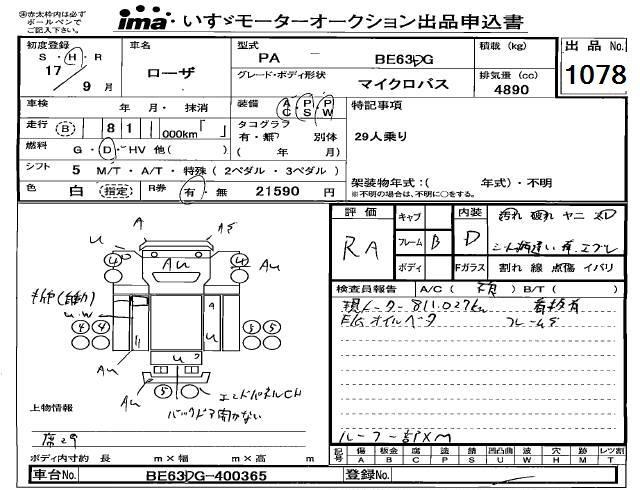 ㊟赤太枠内は必ず
ボールペンで
ご記入下さい。
ima・いすゞモーターオークション出品申込書
初度登録 車名 型式 積載 (kg) 出品 No.
S・H・R ローザ PA BE63DG 1078
17 9月 グレード・ボディ形状 マイクロバス 排気量 (cc) 4890
車検 年 月・抹消 装備 AC PS PW 特記事項
走行 B 81 000km「 」 タコグラフ 29人乗り
燃料 G・D・HV 他( ) 有・無 別体 ( 年 月)
シフト 5 M/T・A/T・特殊 (2ペダル・3ペダル) 架装物年式:( 年式)・不明
色 白 指定 R券 有・無 21590 円 ※不明の場合は、不明に○をする。
評価 キャブ 内装 汚れ 破れ ヤニ
RA フレーム B D
ボディ Fガラス 割れ 線 点傷 イバリ
検査員報告 A/C ( ) B/T ( )
現メーター811,027km 看板有
E/Gオイルベタ フレームサ
ルーフ一部XM
A
A
u
Au
Au
④
④
④④
⑤⑤
u.w
A
u
u
Au
Au
⑤
エンドパネルCH
バックドア開かない
上物情報
席29
ボディ内寸約 長 m×幅 m×高 m
記号 傷 A 板金 B 腐 C 塗 P 錆 S 凹凸曲 U 波 W 穴 H 跡 M レツ割 T
車台No. BE63DG-400365 登録No.